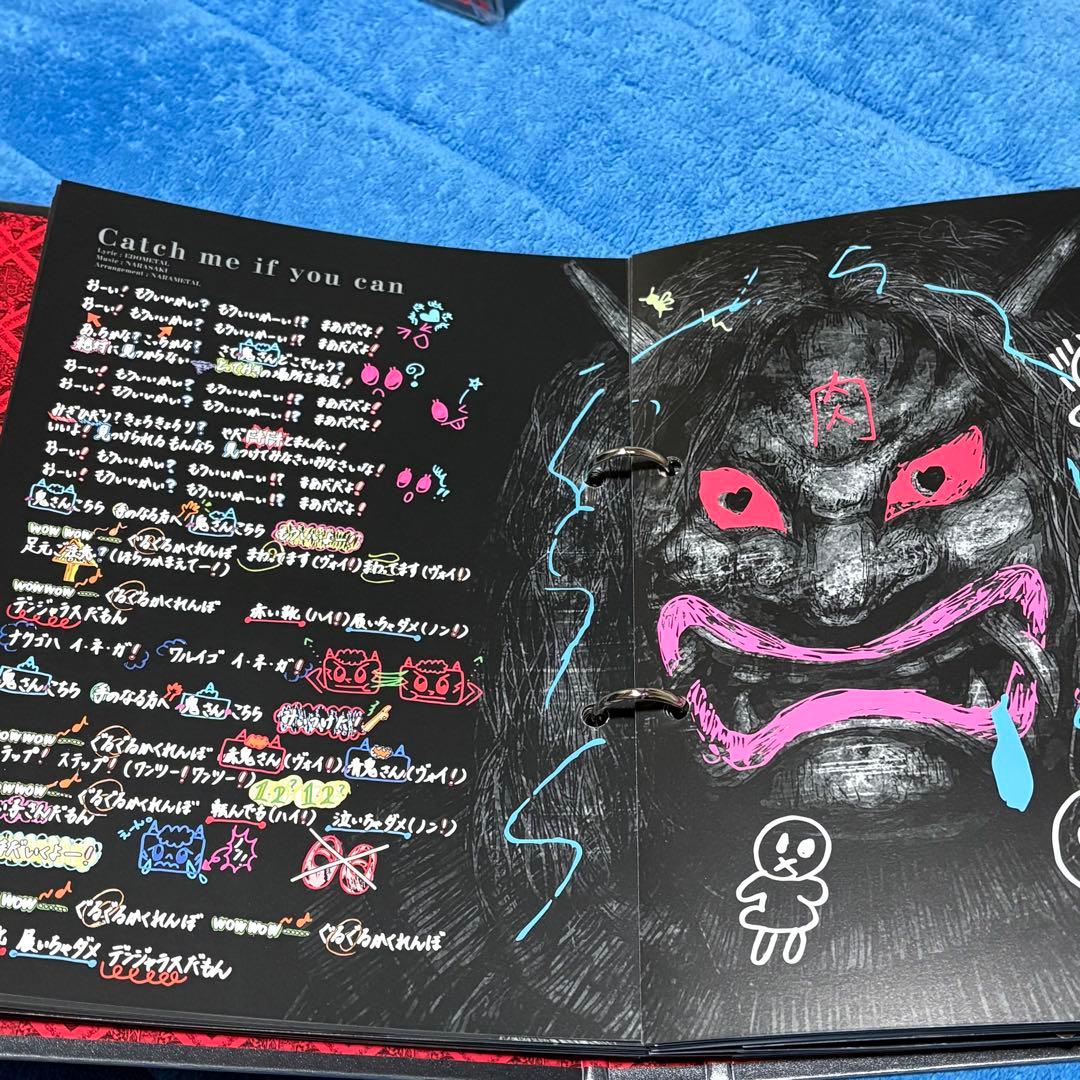 Catch me if you can
Lyric : EDOMETAL
Music : NARASAKI
Arrangement : NARAMETAL
おーい! もういいかい? もういいかーい!? まあだだよ!
おーい! もういいかい? もういいかーい!? まあだだよ!
あっちかな? こっちかな? さて鬼さんどこでしょう?
絶対に見つからない とっておきの場所を発見!
おーい! もういいかい? もういいかーい!? まあだだよ!
おーい! もういいかい? もういいかーい!? まあだだよ!
みぎひだり? きょろきょろり? やだ とまんない!
いいよ! 見つけられるもんなら 見つけてみなさいみなさいな!
おーい! もういいかい? もういいかーい!? まあだだよ!
おーい! もういいかい? もういいかーい!? まあだだよ!
鬼さんこちら 手のなる方へ 鬼さんこちら
wow wow ぐるぐるかくれんぼ まわってます(ヴォイ!) まわってます(ヴォイ!)
足元 注意?(ほらつかまえてー!)
wowwow ぐるぐるかくれんぼ 赤い靴(ハイ!) 履いちゃダメ(ノン!)
デンジャラスだもん
ナクゴハ イ・ネ・ガ! ワルイゴ イ・ネ・ガ!
鬼さんこちら 手のなる方へ 鬼さんこちら みぃつけた!!
wowwow ぐるぐるかくれんぼ 赤鬼さん(ヴォイ!) 青鬼さん(ヴォイ!)
ラップ! ステップ!(ワンツー!ワンツー!)
12? 12?
wowwow ぐるぐるかくれんぼ 転んでも(ハイ!) 泣いちゃダメ(ノン!)
さんだもん
だいくよー!
wow ぐるぐるかくれんぼ wowwow ぐるぐるかくれんぼ
履いちゃダメ デンジャラスだもん
肉